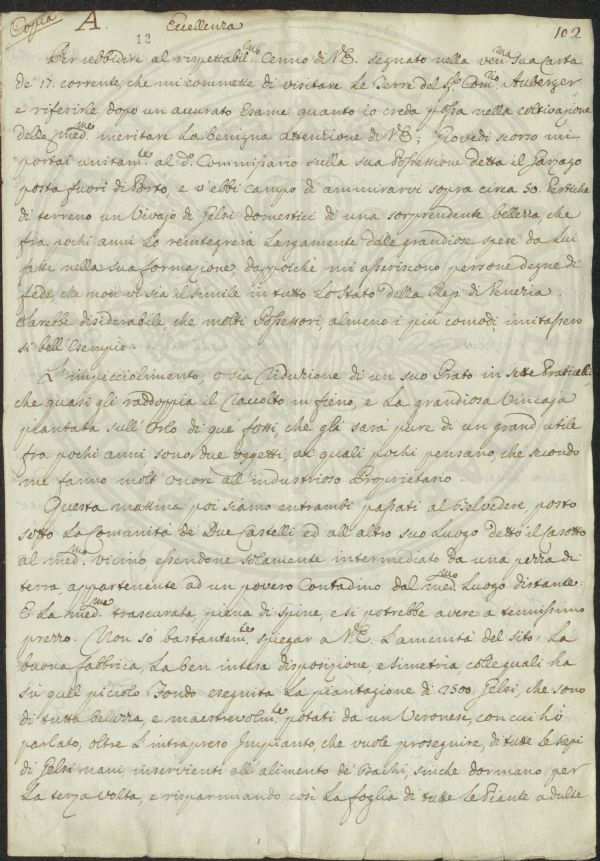 Copia A. 12 Eccellenza 102
Per ubbidire al rispettabil.mo Cenno di V.E. segnato nella ven.ma sua Carta
de' 17. corrente, che mi commette di visitare Le Terre del S.r Com.rio Auberger
e riferirle dopo un accurato Esame quanto io creda possa nella coltivazione
delle med.me meritare La benigna attenzione di V.E; Giovedi scorso mi
portai unitam.te al d.o Commissario sulla sua Possessione detta il Garzago
posta fuori di Porto, e v'ebbi campo di ammirarvi sopra circa 50. Pertiche
di terreno un Vivajo di Gelsi domestici d'una sorprendente bellezza, che
fra pochi anni Lo reintegrerà Largamente dalle grandiose spese da Lui
fatte nella sua formazione, dappoiché mi asseriscono persone degne di
fede, che non vi sia il simile in tutto Lo Stato della Rep. di Venezia.
Sarebbe disiderabile, che molti Possessori, almeno i più comodi imitassero
si bell'Esempio.
L'impicciolimento, o sia Riduzione di un suo Prato in sette Praticelli
che quasi gli raddoppia il Raccolto in fieno, e La grandiosa Vincaja
piantata sull'Orlo di que' fossi, che gli sarà pure di un grand'utile
fra pochi anni sono due oggetti, a' quali pochi pensano, che secondo
me fanno molt'onore all'industrioso Proprietario.
Questa mattina poi siamo entrambi passati al Belvedere, posto
sotto La Comunità de' Due Castelli ed all'altro suo Luogo detto il Casotto
al med.mo vicino essendone solamente intermediato da una pezza di
terra, appartenente ad un povero Contadino dal med.mo Luogo distante.
E La med.ma trascurata, piena di spine, e si potrebbe avere a tennissimo
prezzo. Non sò bastantem.te spiegar a V.E. L'amenità del sito: La
buona fabbrica, La ben intesa disposizione, e simetria, colle quali ha
sù quel picciolo Fondo eseguita La piantagione di 2500. Gelsi, che sono
di tutta bellezza, e maestrevolm.te potati da un Veronese, con cui hò
parlato, oltre L'intrapreso Impianto, che vuole proseguire, di tutte Le siepi
di Gelsi nani, inservienti all'alimento de' Bachi, sinche dormano per
La terza volta, e risparmiando così La foglia di tutte Le Piante adulte